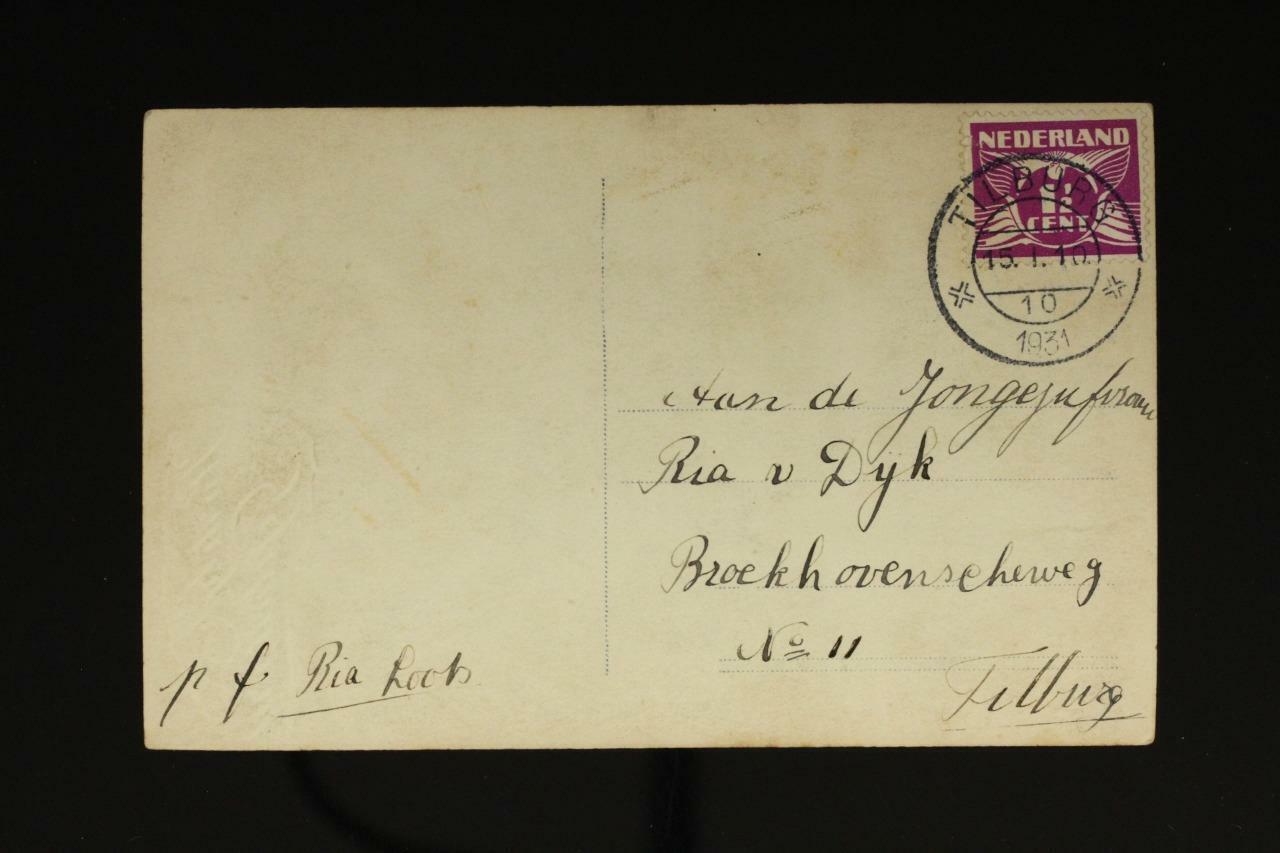 NEDERLAND
1½
CENT
TILBURG
15.1.10.
10
1931
Aan de Jongejufvrouw
Ria v Dijk
Broekhovenscheweg
No 11
Tilburg
p f Ria Loots